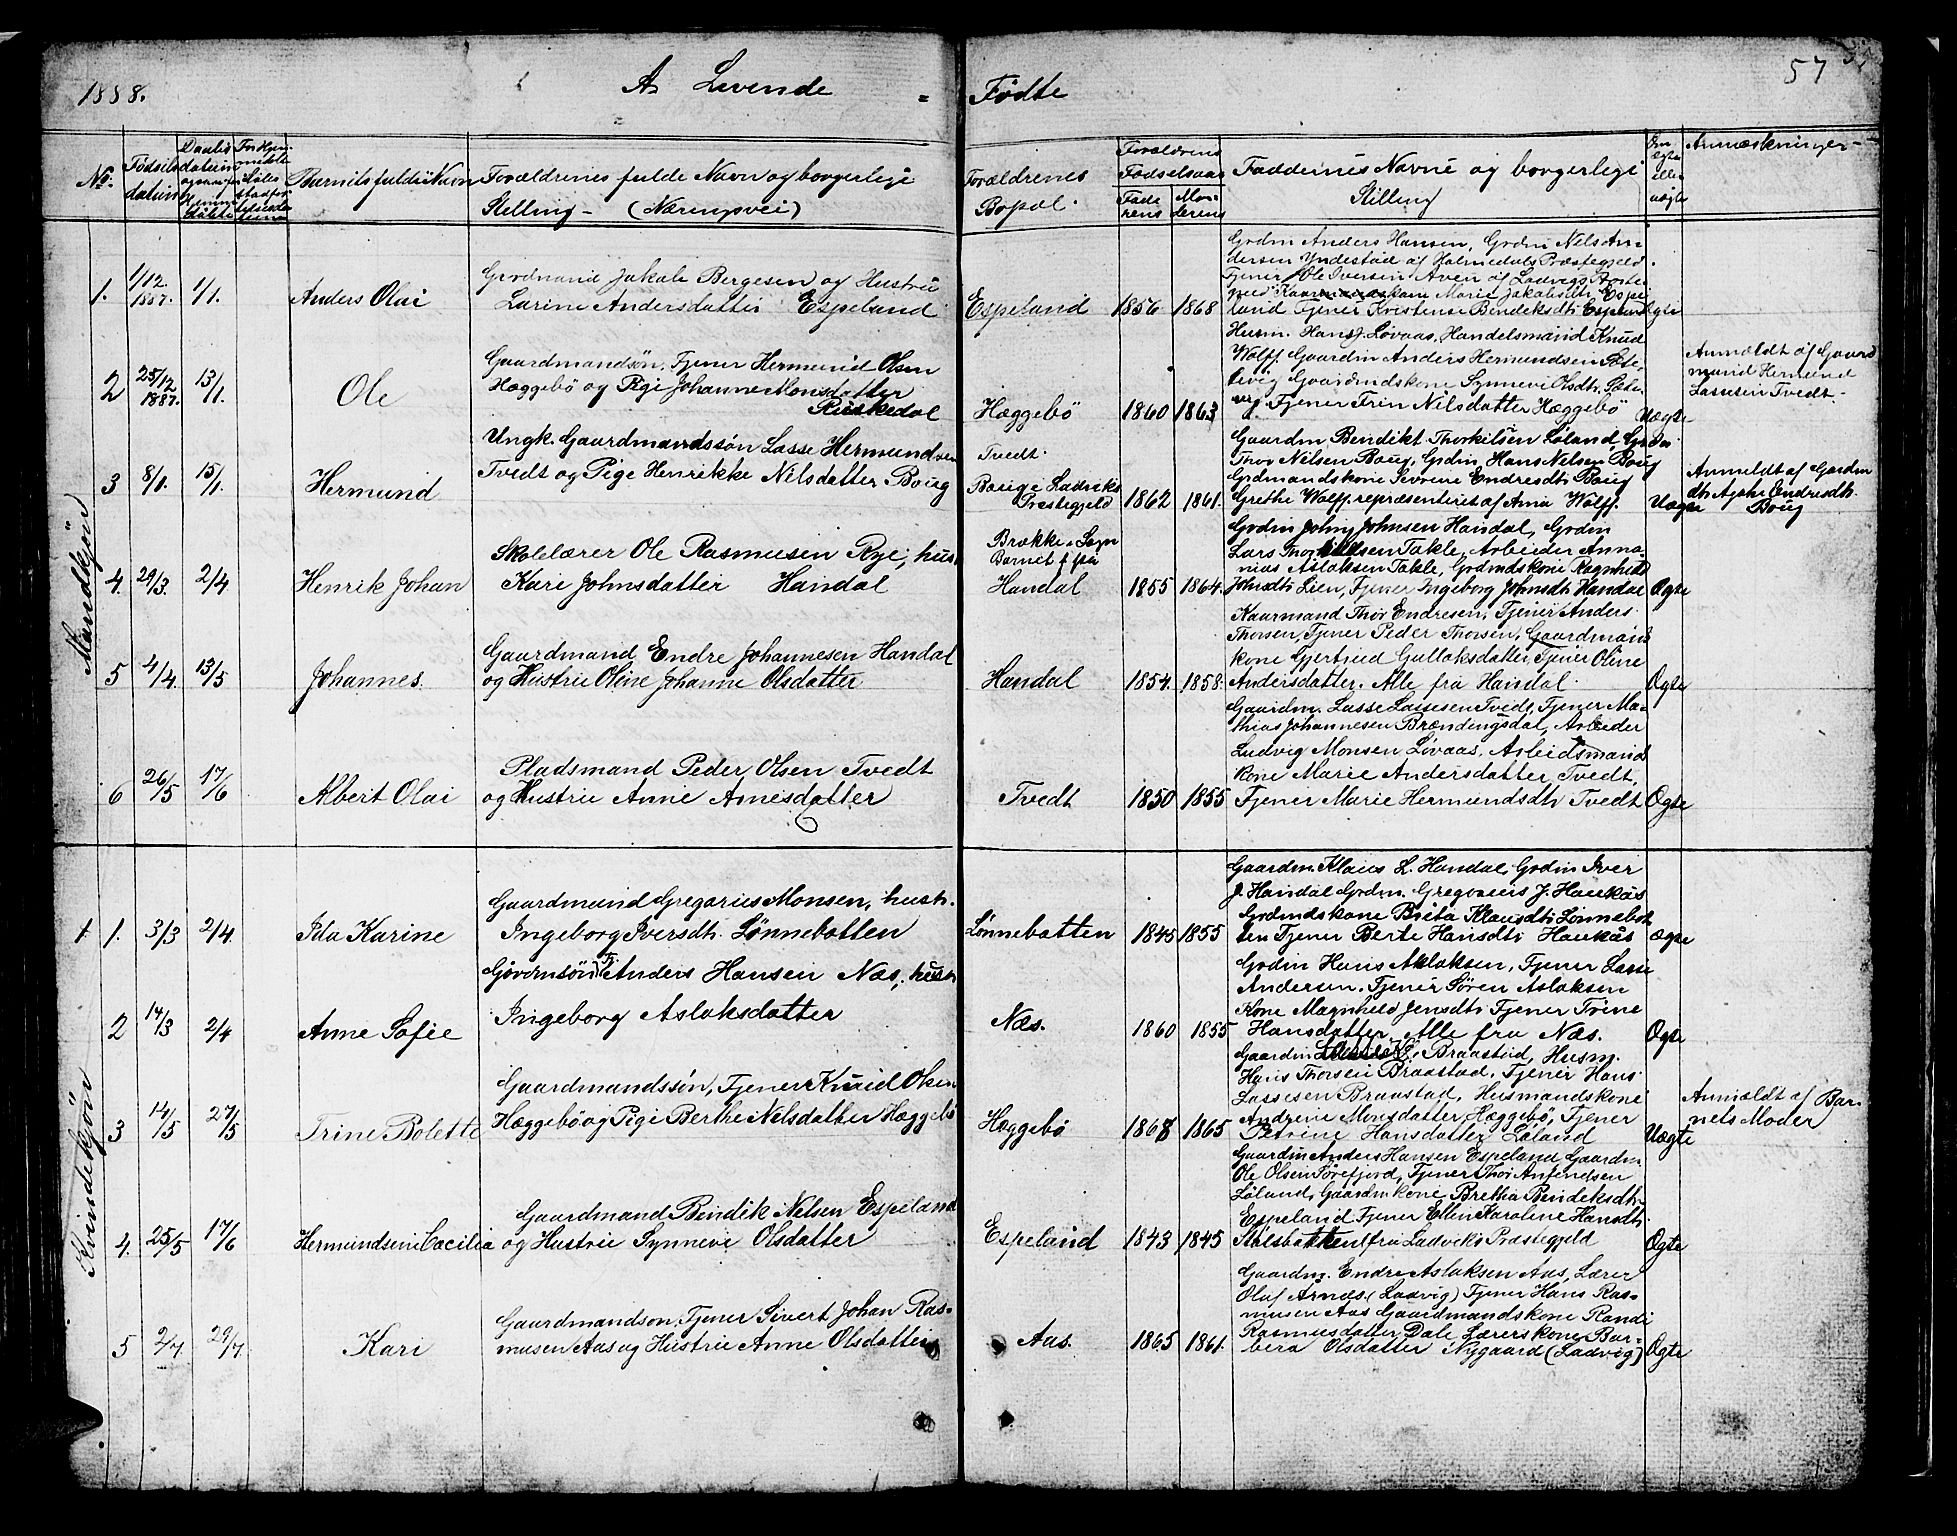 1888.
A. Levende = Fødte
57
No.
Fødsels datum
Daabs datum
Barnets fulde Navn
Forældrenes fulde Navn og borgerlige
Stilling – (Næringsvei)
Forældrenes
Bopæl.
Forældrenes
Fødselsaar
Fade rens
Mo- derens
Faddernes Navne og borgerlige
Stilling
Om ægte eller uægte
Anmærkninger
Mandkjøn
1. 1/12 1887. 1/1. Anders Olai
Grdmand Jakob Bergesen og Hustru
Larine Andersdatter Espeland
Espeland 1856 1868
Grdm Anders Hansen, Grdm Nels An-
dersen Yndestad af Holmedals Præstegjeld.
Tjener Ole Iversen Aven af Ladvigs Præste-
gjeld Kaarmandskone Marie Jakobsdtr Espe
land Tjener Kristense Bendeksdtr Espeland
Ægte
2 25/12 1887. 13/1. Ole
Gaardmandsøn, Tjener Hermund Olsen
Hæggebö og Pige Johanne Monsdatter
Ruskedal
Hæggebö 1860 1863
Husm. Hans J. Løvaas, Handelsmand Knud
Wolff. Gaardm Anders Hermundsen
Gaardmdskone Synneve Olsdtr.
Tjener Trin Nilsdatter Hæggebö
Uægte
Anmældt af Gaard
mand Hermund
Lassesen Tvedt.
3 8/1. 15/1. Hermund
Ungk. Gaardmandssøn Lasse Hermundsen
Tvedt og Pige Henrikke Nilsdatter Boug
Tvedt.
Boug i Ladviks
Præstegjeld
1862 1861.
Gaardm Bendikt Thorkilsen Løland Grdm.
Thor Nilsen Boug, Grdm Hans Nilsen Boug
Grdmandskone Severine Endresdtr Boug
Grethe Wolff repræsenteret af Anna Wolff.
Uægte
Anmeldt af Gardm
dtr Agate Endresdtr.
Boug
4. 29/3. 2/4 Henrik Johan
Skolelærer Ole Rasmusen Rye, hus.
Kari Johnsdatter Handal
Brække Sogn
Barnet f på
Handal 1855 1864.
Grdm Johny Johnsen Handal, Grdm
Lars Thorkildsen Takle, Arbeider Anna-
nias Aslaksen Takle, Grdmdskone Ragnhild
Johnsdtr Lien, Tjener Ingeborg Johnsdtr Handal
Ægte
5 4/4. 13/5 Johannes.
Gaardmand Endre Johannesen Handal
og Hustru Oline Johanne Olsdatter
Handal 1854. 1858.
Kaarmand Thor Endresen, Tjener Anders
Thorsen, Tjener Peder Thorsen, Gaardmans
kone Gjertrud Gullaksdatter, Tjener Oline
Andersdatter. Alle fra Handal.
Ægte
6 26/5 17/6 Albert Olai
Pladsmand Peder Olsen Tvedt
og Hustru Anne Arnesdatter
Tvedt 1850 1855
Gaardm. Lasse Lassesen Tvedt, Tjener Ma-
thias Johannesen Brændingsdal, Arbeider
Ludvig Monsen Løvaas, Arbeidsmand
kone Marie Andersdatter Tvedt,
Tjener Marie Hermundsdtr Tvedt
Ægte
Kvindekjøn
1. 3/3 2/4 Ida Karine
Gaardmand Gregorius Monsen, hust.
Ingeborg Iversdtr. Lønnebotten
Lønnebotten 1845 1855
Gaardm. Klaus L. Handal, Grdm Iver
J. Handal Grdm. Gregorius J. Haukås
Grdmdskone Brita Klausdtr Lønnebot
ten Tjener Berte Hansdtr Haukås
Ægte
2 14/3 2/4 Anne Sofie
Tj. Anders Hansen Næs, hust
Ingeborg Aslaksdatter
Næs. 1860 1855
Grdm Hans Aslaksen, Tjener Lasse
Andersen. Tjener Søren Aslaksen
Kone Magnhild Jensdtr Tjener Trine
Hansdatter. Alle fra Næs.
Ægte
3 14/5 27/5 Trine Bolette
Gaardmandssøn, Tjener Knud Olsen
Hæggebö og Pige Berthe Nelsdatter Hæggebö
Hæggebö 1868 1865
Gaardm Braastad, Husm.
Hans Thorsen Braastad, Tjener Hans
Lassesen Braastad, Husmandskone
Andrine Monsdatter Hæggebö, Tjener
Petrine Hansdatter Løland
Uægte
Anmældt af Bar-
nets Moder
4. 25/5 17/6 Hermundsene Cæcilia
Gaardmand Bendik Nelsen Espeland
og Hustru Synneve Olsdatter
Espeland 1843 1845
Gaardm Anders Hansen Espeland Gaardm.
Ole Olsen Torefjord, Tjener Thor Anfendsen
Løland, Gaardm.kone Brethe Bendeksdtr
Espeland Tjener Ellen Karoline Hansdtr.
Stølsbotten fra Ladviks Præstegjeld
Ægte
5 2/7 29/7 Kari
Gaardmandsøn, Tjener Sivert Johan Ras-
musen Aas og Hustru Anne Olsdatter
Aas. 1865 1861.
Gaardm. Endre Aslaksen Aas, Lærer
Oluf Arnds. (Ladvig) Tjener Hans Ras-
musen Aas Gaardmandskone Randi
Rasmusdatter Dale Lærerskone Bar-
bera Olsdatter Nygaard (Ladvig)
Ægte